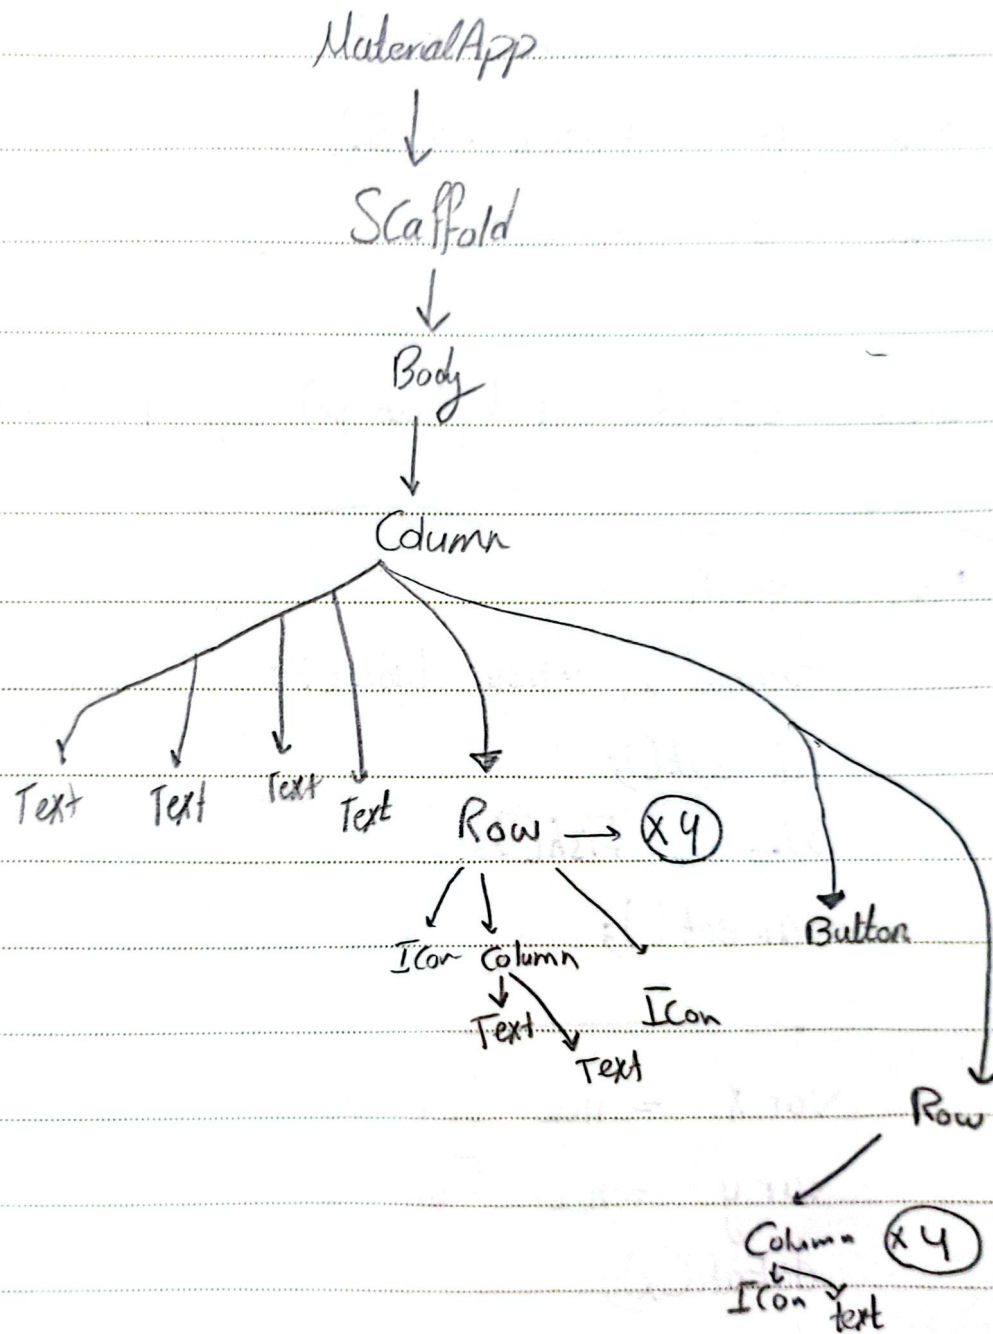 MaterialApp
Scaffold
Body
Column
Text Text Text Text
Row → x4
Button
Icon Column Icon
Text
Text
Row
Column x4
Icon text